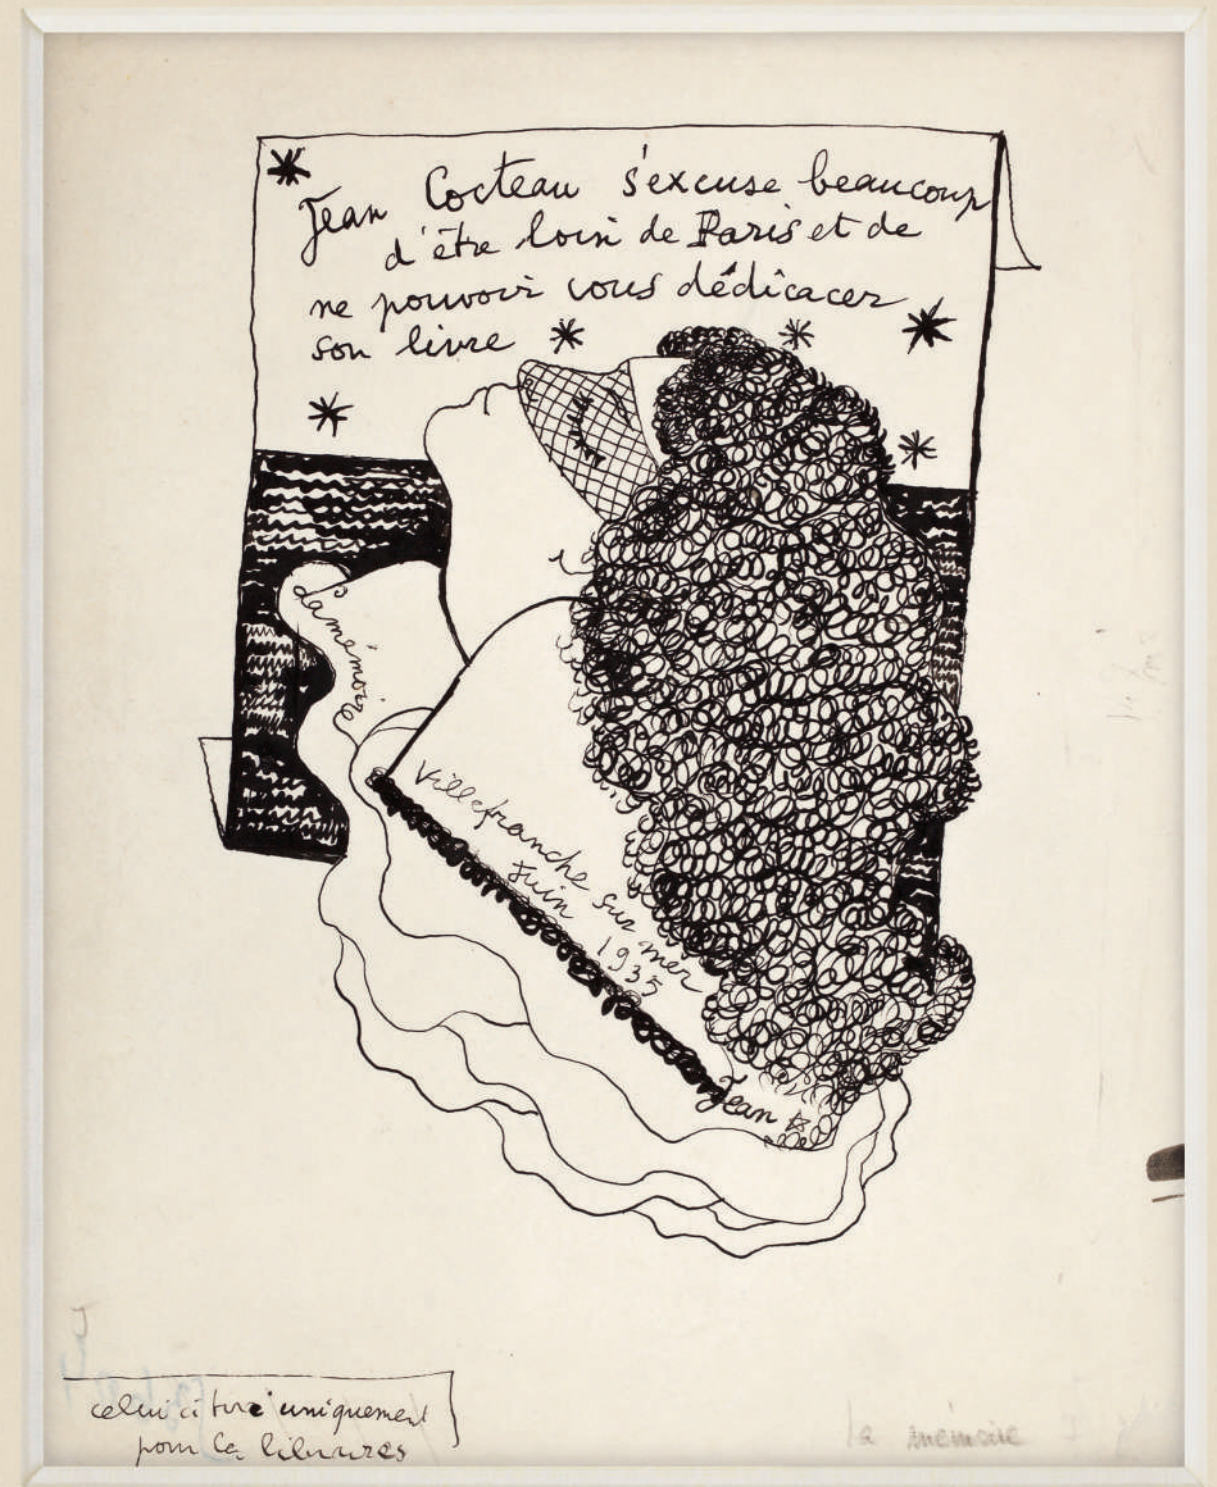 Jean Cocteau s'excuse beaucoup
d'être loin de Paris et de
ne pouvoir vous dédicacer
son livre
La mémoire
Villefranche sur mer
Juin 1935
Jean
celui ci tiré uniquement
pour les libraires
la mémoire